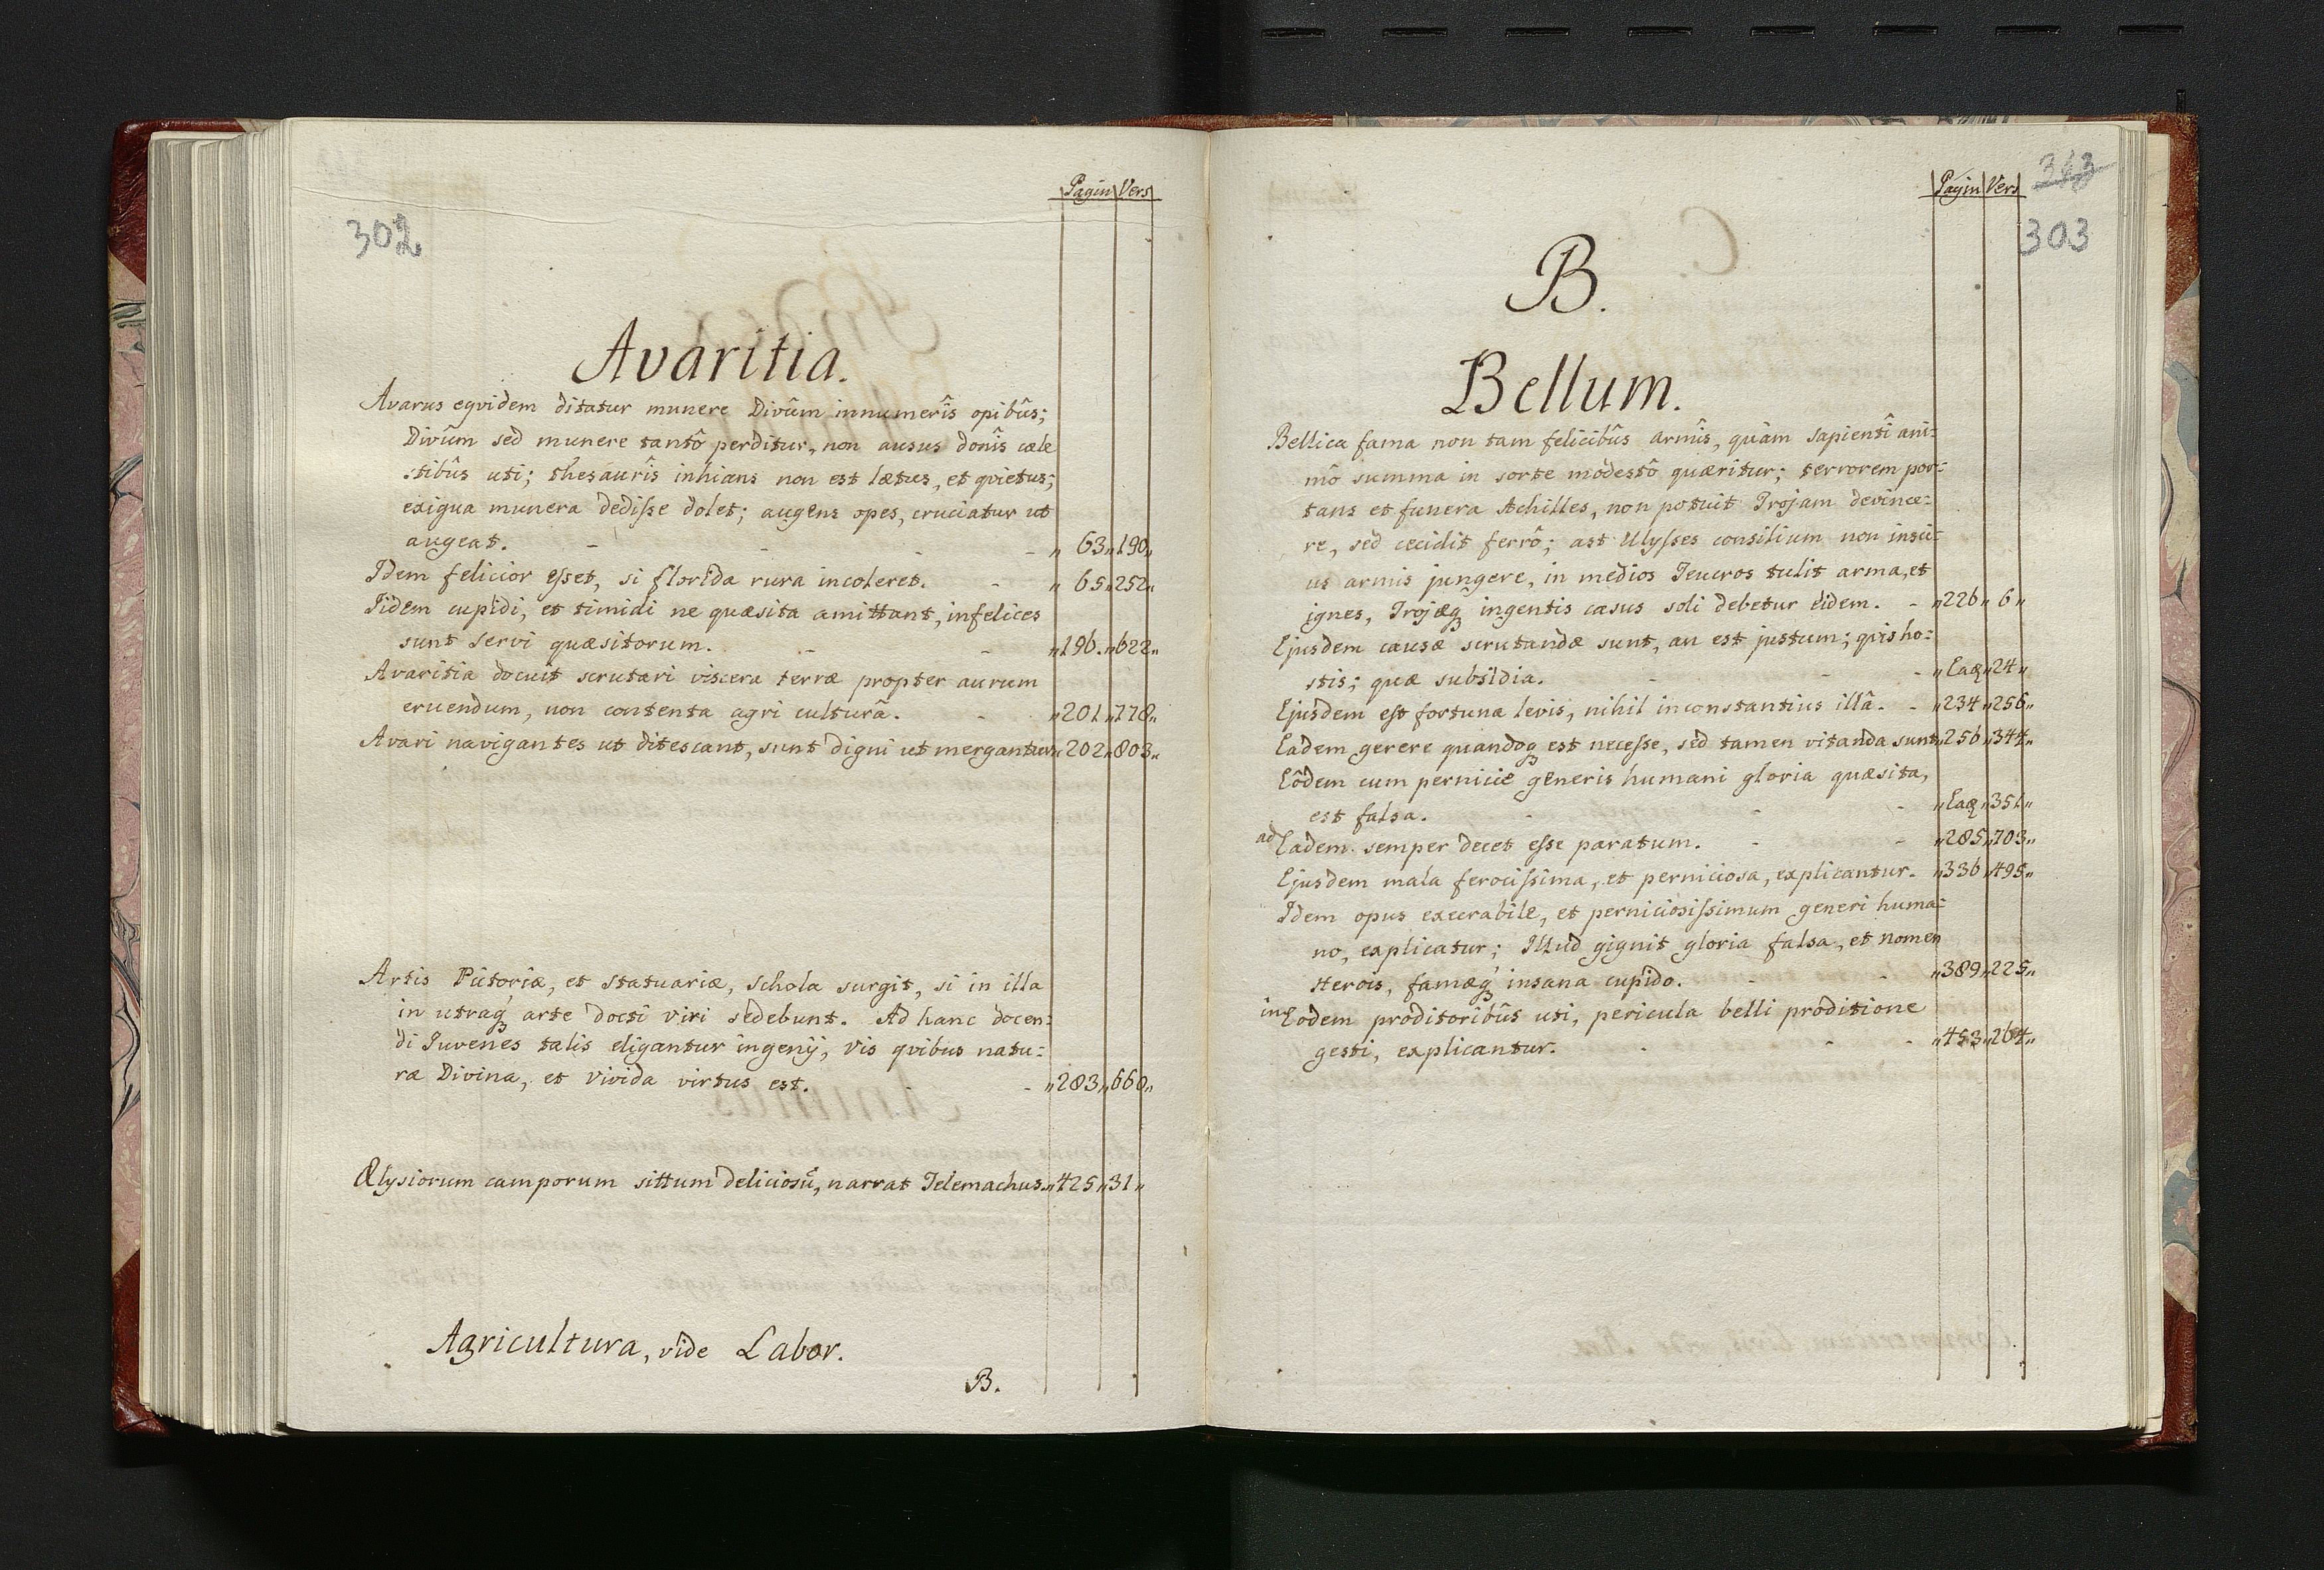 Pagin Vers
302
Avaritia.
Avarus eqvidem ditatur munere Divûm innumerîs opibûs;
Divûm sed munere tantô perditur, non ausus donîs cæle
stibûs uti; thesaurîs inhians non est lætus, et qvietus;
exigua munera dedisse dolet; augens opes, cruciatur ut
augeat. - - - - „ 63 „ 190 „
Idem felicior esset, si florida rura incoleret. - „ 65 „ 252 „
Iidem cupidi, et timidi ne quæsita amittant, infelices
sunt servi quæsitorum. - - „ 196. „ 622 „
Avaritia docuit scrutari viscera terræ propter aurum
eruendum, non contenta agri culturâ. - „ 201 „ 778 „
Avari navigantes ut ditescant, sunt digni ut mergantur „ 202 „ 803 „
Artis Pictoriæ, et statuariæ, schola surgit, si in illa
in utraqꝫ arte docti viri sedebunt. Ad hanc docen:
di Iuvenes talis eligantur ingenij, vis qvibus natu:
ra Divina, et vivida virtus est. - „ 283 „ 660 „
Ælysiorum camporum sittum deliciosū, narrat Telemachus. „ 425 „ 31 „
Agricultura, vide Labor.
B.
Pagin Vers
313
303
B.
Bellum.
Bellica fama non tam felicibûs armîs, quàm sapientî ani:
mô summa in sorte modestô quæritur; terrorem por:
tans et funera Achilles, non potuit Trojam devince:
re, sed cecidit ferrô; ast Ulysses consilium non insci:
us armis jungere, in medios Teucros tulit arma, et
ignes, Trojæqꝫ ingentis casus soli debetur eidem. - „ 226 „ 6 „
Ejusdem causæ scrutandæ sunt, an est justum; qvis ho:
stis; quæ subsidia. - - - „ Eaꝫ „ 24 „
Ejusdem est fortuna levis, nihil inconstantius illâ. - „ 234 „ 256 „
Eadem gerere quandoqꝫ est necesse, sed tamen vitanda sunt „ 256 „ 344 „
Eôdem cum perniciê generis humani gloria quæsita,
est falsa. - - - „ Eaꝫ „ 351 „
ad Eadem semper decet esse paratum. - - „ 285 „ 703 „
Ejusdem mala ferocissima, et perniciosa, explicantur. „ 336 „ 495 „
Idem opus execrabile, et perniciosissimum generi huma:
no, explicatur; Illud gignit gloria falsa, et nomen
Herois, famæqꝫ insana cupido. - - „ 389 „ 225 „
in Eodem proditoribûs uti, pericula belli proditione
gesti, explicantur. - - - „ 453 „ 264 „